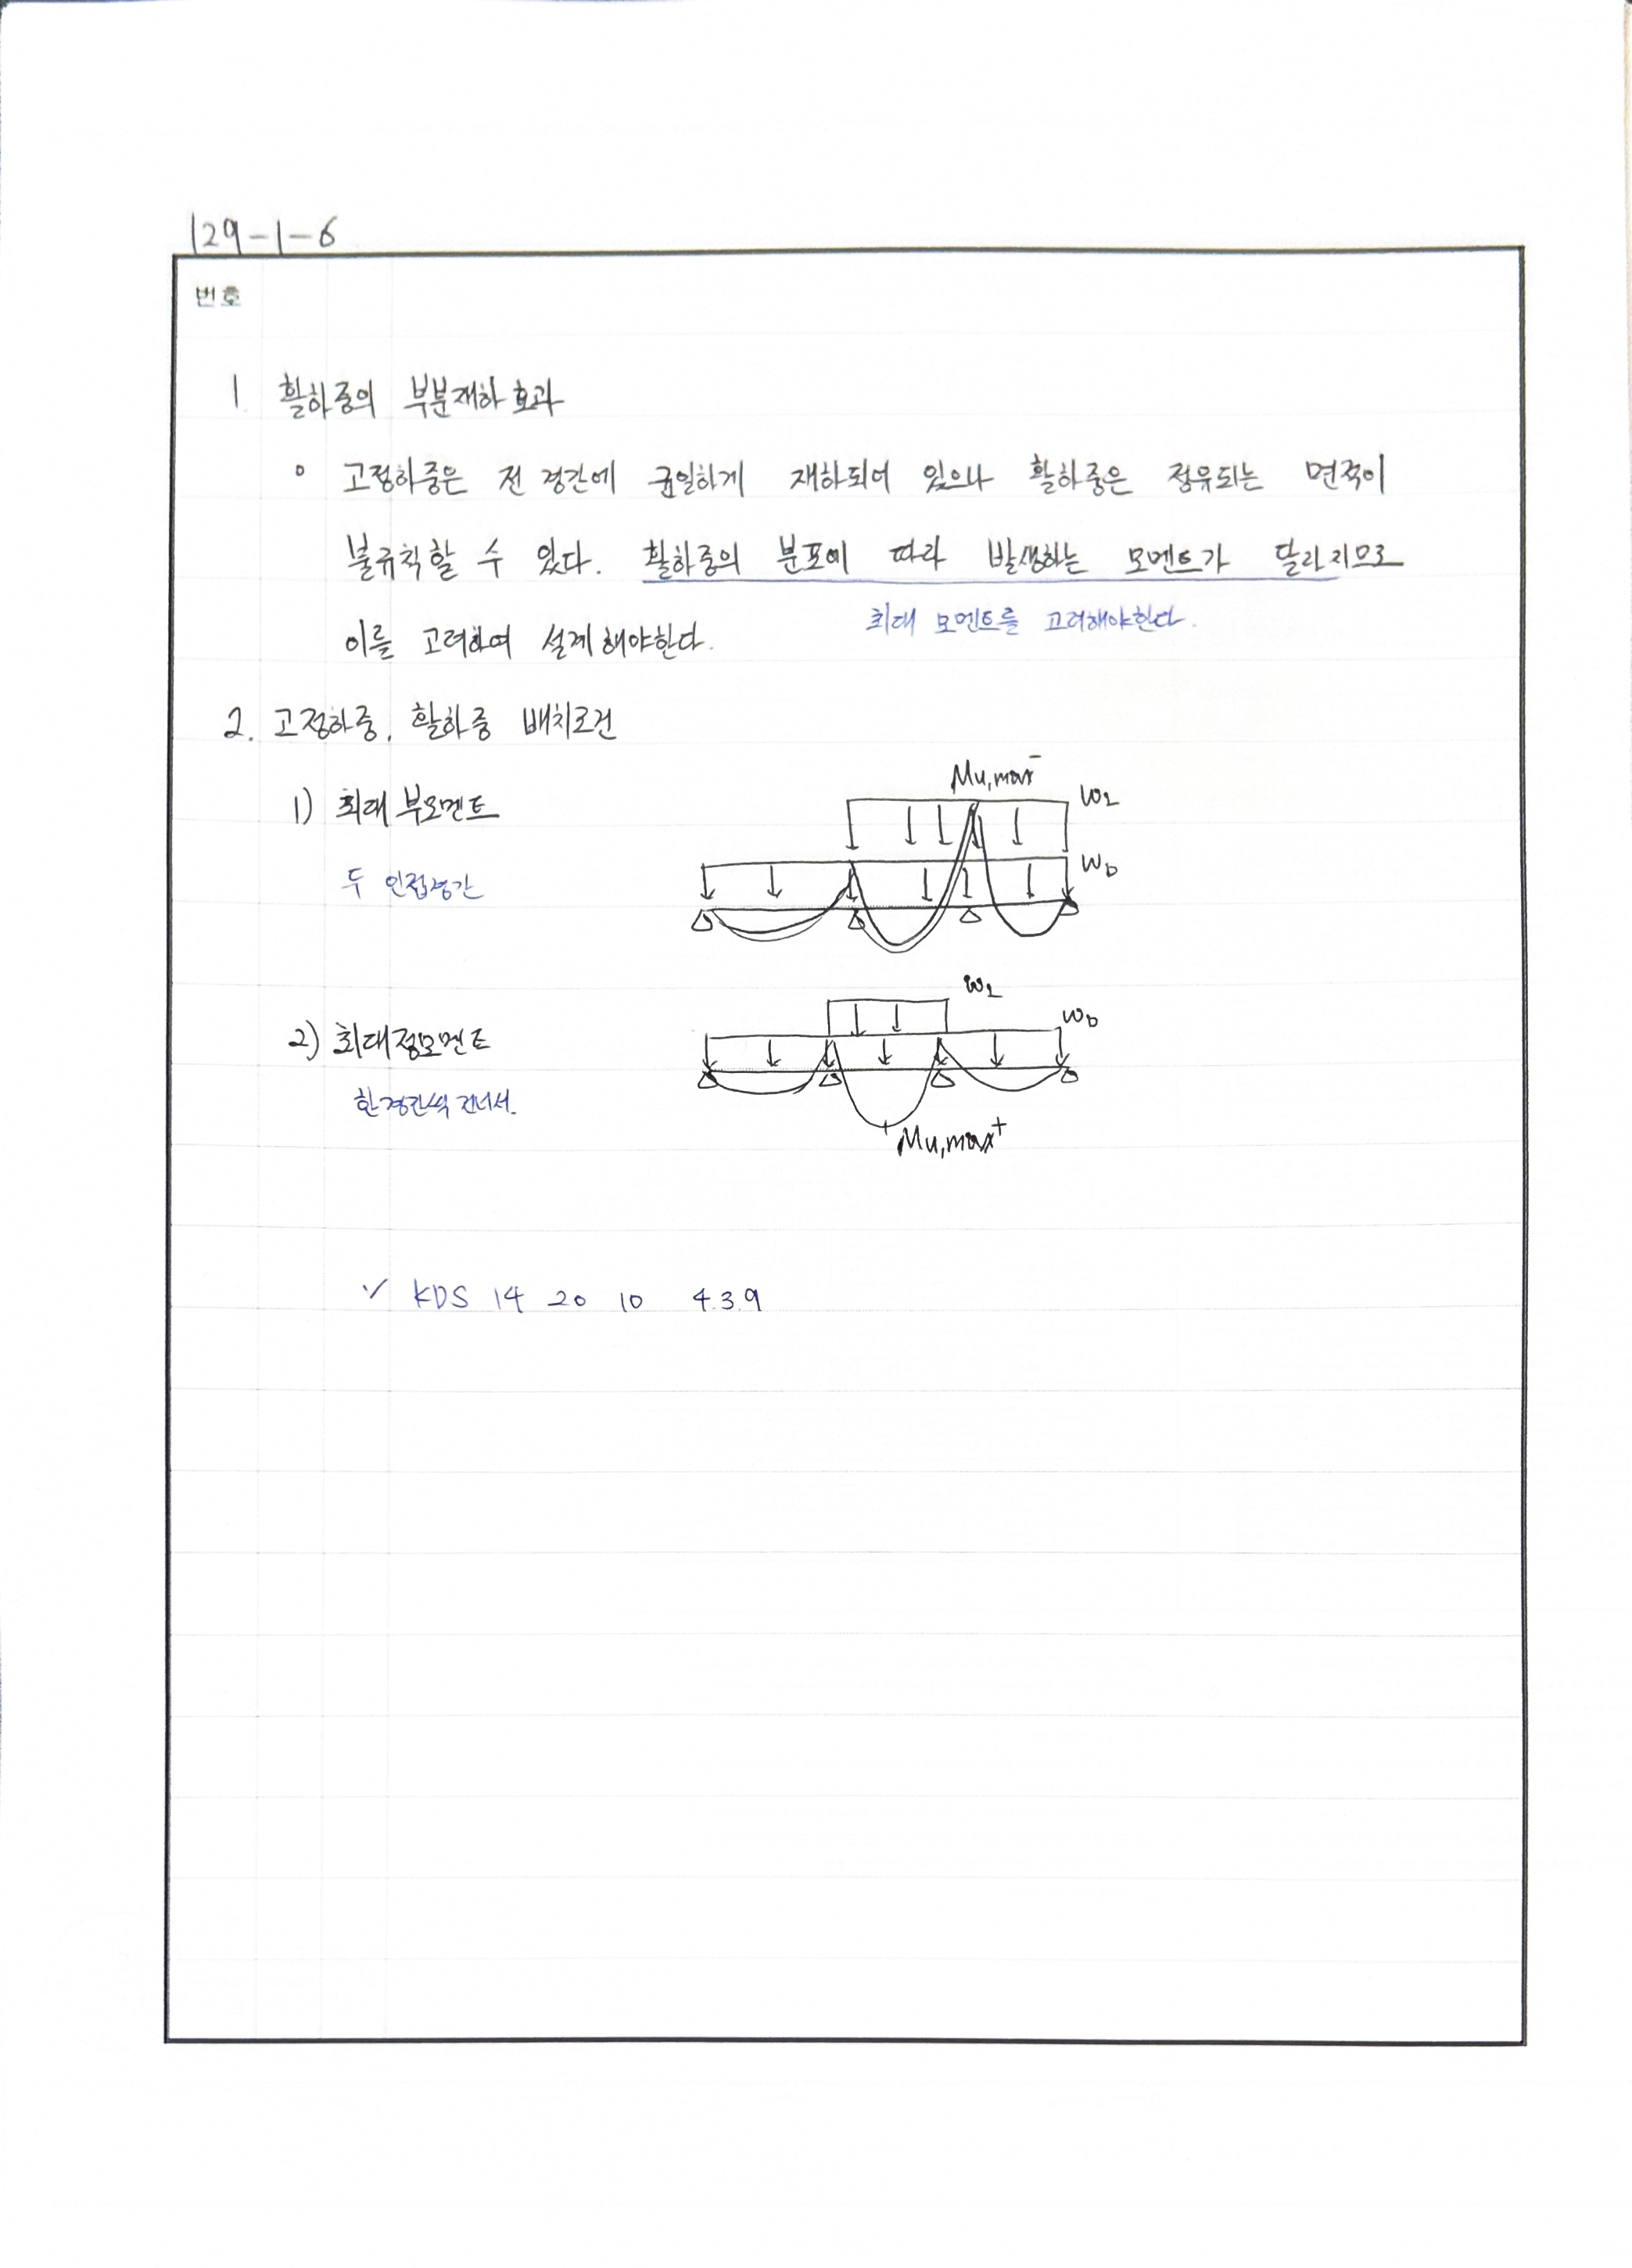 129-1-6
번호
1 활하중의 부분재하효과
o 고정하중은 전 경간에 균일하게 재하되어 있으나 활하중은 점유되는 면적이
불규칙할 수 있다. 활하중의 분포에 따라 발생하는 모멘트가 달라지므로
최대 모멘트를 고려해야한다.
이를 고려하여 설계해야한다.
2. 고정하중, 활하중 배치조건
Mu,max-
1) 최대 부모멘트
wL
wD
두 인접경간
wL
wD
2) 최대정모멘트
한경간씩 건너서.
Mu,max+
KDS 14 20 10 4.3.9